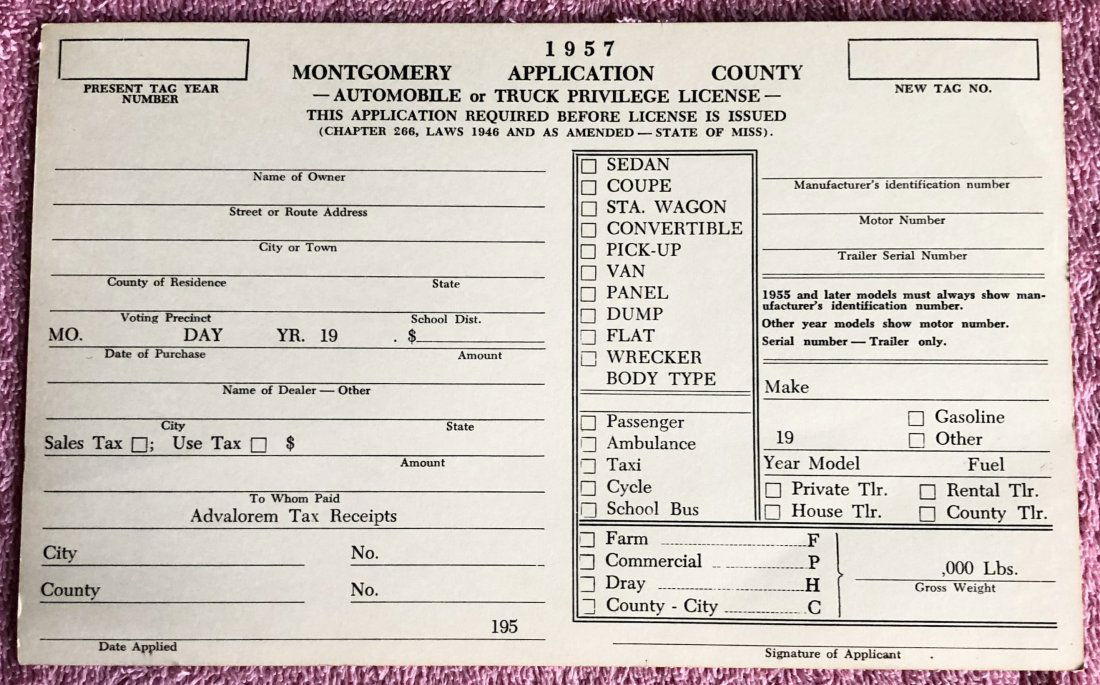 1957
MONTGOMERY APPLICATION COUNTY
— AUTOMOBILE or TRUCK PRIVILEGE LICENSE —
THIS APPLICATION REQUIRED BEFORE LICENSE IS ISSUED
(CHAPTER 266, LAWS 1946 AND AS AMENDED — STATE OF MISS).
PRESENT TAG YEAR
NUMBER
NEW TAG NO.
Name of Owner
Street or Route Address
City or Town
County of Residence State
Voting Precinct School Dist.
MO. DAY YR. 19 . $
Date of Purchase Amount
Name of Dealer — Other
City State
Sales Tax ☐; Use Tax ☐ $
Amount
To Whom Paid
Advalorem Tax Receipts
City No.
County No.
195
Date Applied
☐ SEDAN
☐ COUPE
☐ STA. WAGON
☐ CONVERTIBLE
☐ PICK-UP
☐ VAN
☐ PANEL
☐ DUMP
☐ FLAT
☐ WRECKER
BODY TYPE
☐ Passenger
☐ Ambulance
☐ Taxi
☐ Cycle
☐ School Bus
Manufacturer's identification number
Motor Number
Trailer Serial Number
1955 and later models must always show man-
ufacturer's identification number.
Other year models show motor number.
Serial number — Trailer only.
Make
☐ Gasoline
19 ☐ Other
Year Model Fuel
☐ Private Tlr. ☐ Rental Tlr.
☐ House Tlr. ☐ County Tlr.
☐ Farm F
☐ Commercial P
☐ Dray H
☐ County - City C
,000 Lbs.
Gross Weight
Signature of Applicant